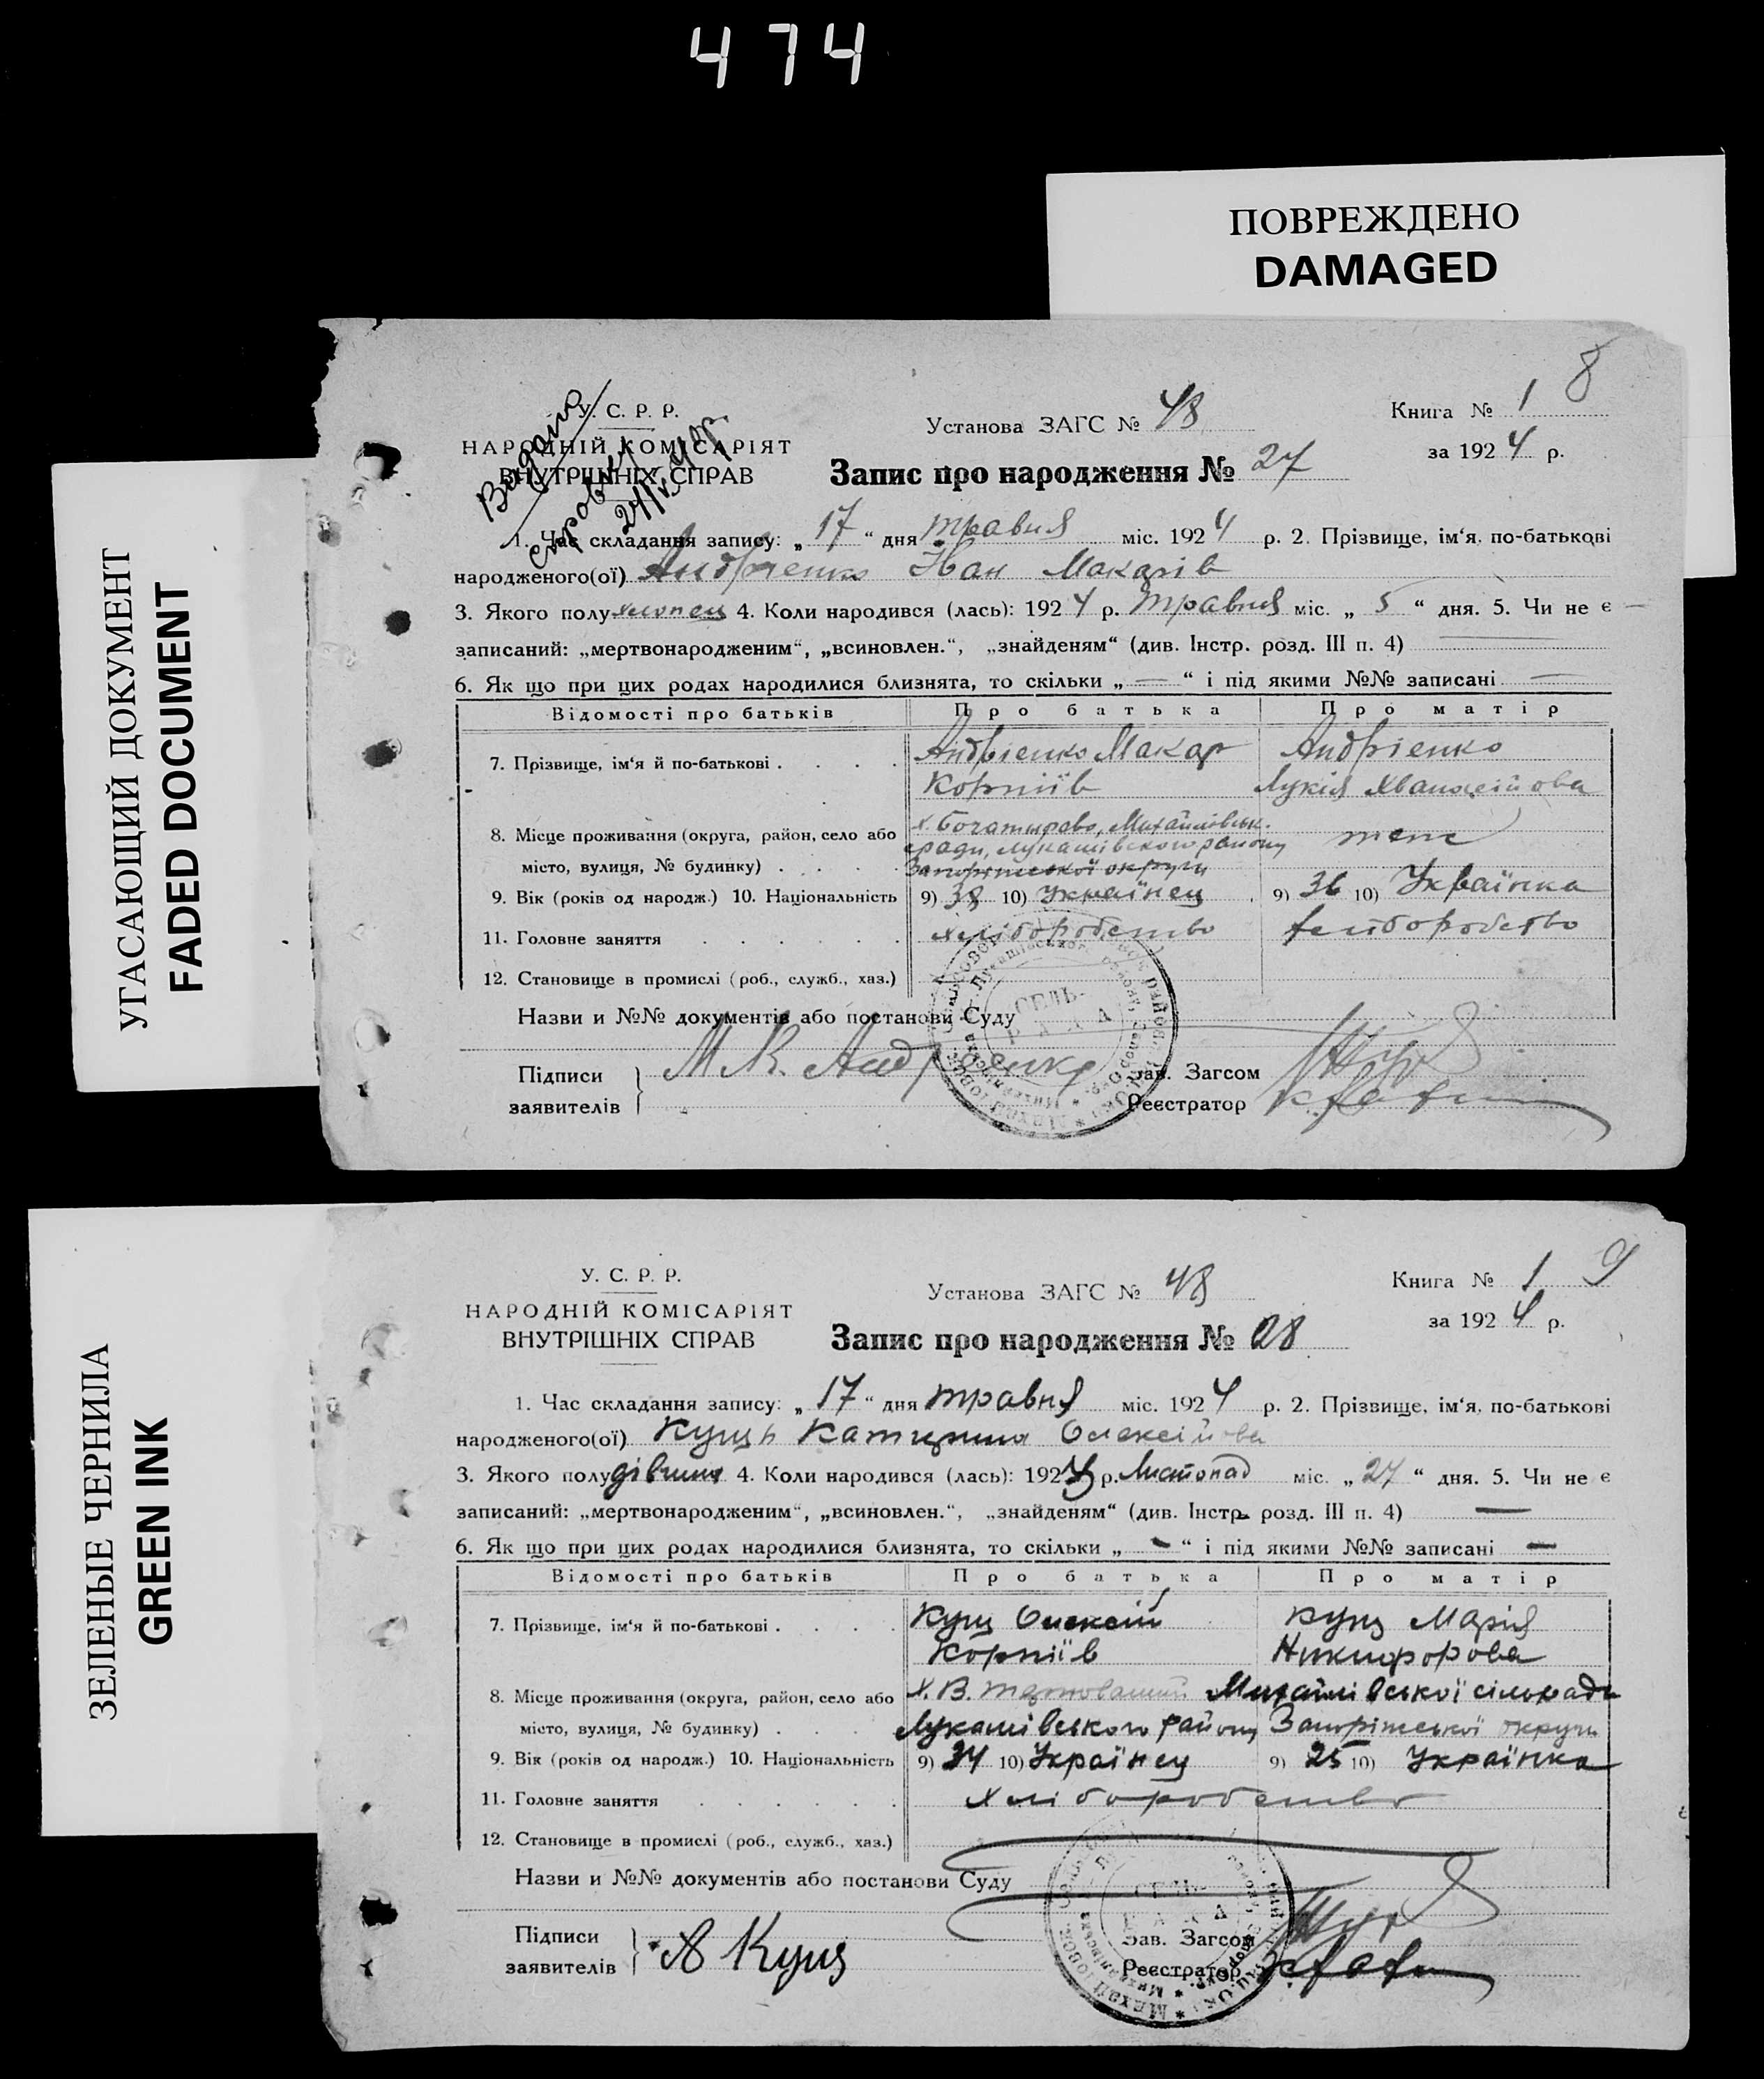 474
ПОВРЕЖДЕНО
DAMAGED
УГАСАЮЩИЙ ДОКУМЕНТ
FADED DOCUMENT
8
У. С. Р. Р.
НАРОДНІЙ КОМІСАРІЯТ
ВНУТРІШНІХ СПРАВ
Установа ЗАГС № 48
Книга № 1
за 1924 р.
Запис про народження № 27
1. Час складання запису: „17“ дня травня міс. 1924 р. 2. Прізвище, ім‘я, по-батькові
народженого(ої) Андрієнко Іван Макарів
3. Якого полу хлопец 4. Коли народився (лась): 1924 р. травня міс. „5“ дня. 5. Чи не є —
записаний: „мертвонародженим“, „всиновлен.“, „знайденям“ (див. Інстр. розд. III п. 4) —
6. Як що при цих родах народилися близнята, то скільки „—“ і під якими №№ записані —
Відомості про батьків Про батька Про матір
7. Прізвище, ім‘я й по-батькові . . . . Андрієнко Макар Андрієнко
Корніїв Лукія
8. Місце проживання (округа, район, село або х. Богатирово, Михайлівськ.
сради, Лукашівського району теж
місто, вулиця, № будинку) . . . . Запоріжської округи
9. Вік (років од народж.) 10. Національність 9) 38 10) Українец 9) 36 10) Українка
11. Головне заняття . . . . . . хліборобство хліборобство
12. Становище в промислі (роб., служб., хаз.)
Назви и №№ документів або постанови Суду
СЕЛЬ-
РАДА
Підписи
заявителів
М К. Андрієнко
Зав. Загсом
Реєстратор
ЗЕЛЕНЫЕ ЧЕРНИЛА
GREEN INK
9
У. С. Р. Р.
НАРОДНІЙ КОМІСАРІЯТ
ВНУТРІШНІХ СПРАВ
Установа ЗАГС № 48
Книга № 1
за 1924 р.
Запис про народження № 28
1. Час складання запису: „17“ дня травня міс. 1924 р. 2. Прізвище, ім‘я, по-батькові
народженого(ої) Куць Катирина Олексійова
3. Якого полу дівчина 4. Коли народився (лась): 1923 р. Листопад міс. „27“ дня. 5. Чи не є
записаний: „мертвонародженим“, „всиновлен.“, „знайденям“ (див. Інстр. розд. III п. 4) —
6. Як що при цих родах народилися близнята, то скільки „—“ і під якими №№ записані —
Відомості про батьків Про батька Про матір
7. Прізвище, ім‘я й по-батькові . . . . Куц Олексій Куц Марія
Корніїв Никифорова
8. Місце проживання (округа, район, село або х. В. Михайлівської сільради
місто, вулиця, № будинку) . . . . Лукашівського району Запоріжської округи
9. Вік (років од народж.) 10. Національність 9) 34 10) Українец 9) 25 10) Українка
11. Головне заняття . . . . . . хліборобство
12. Становище в промислі (роб., служб., хаз.)
Назви и №№ документів або постанови Суду
СЕЛЬ-
РАДА
Підписи
заявителів
Куц
Зав. Загсом
Реєстратор